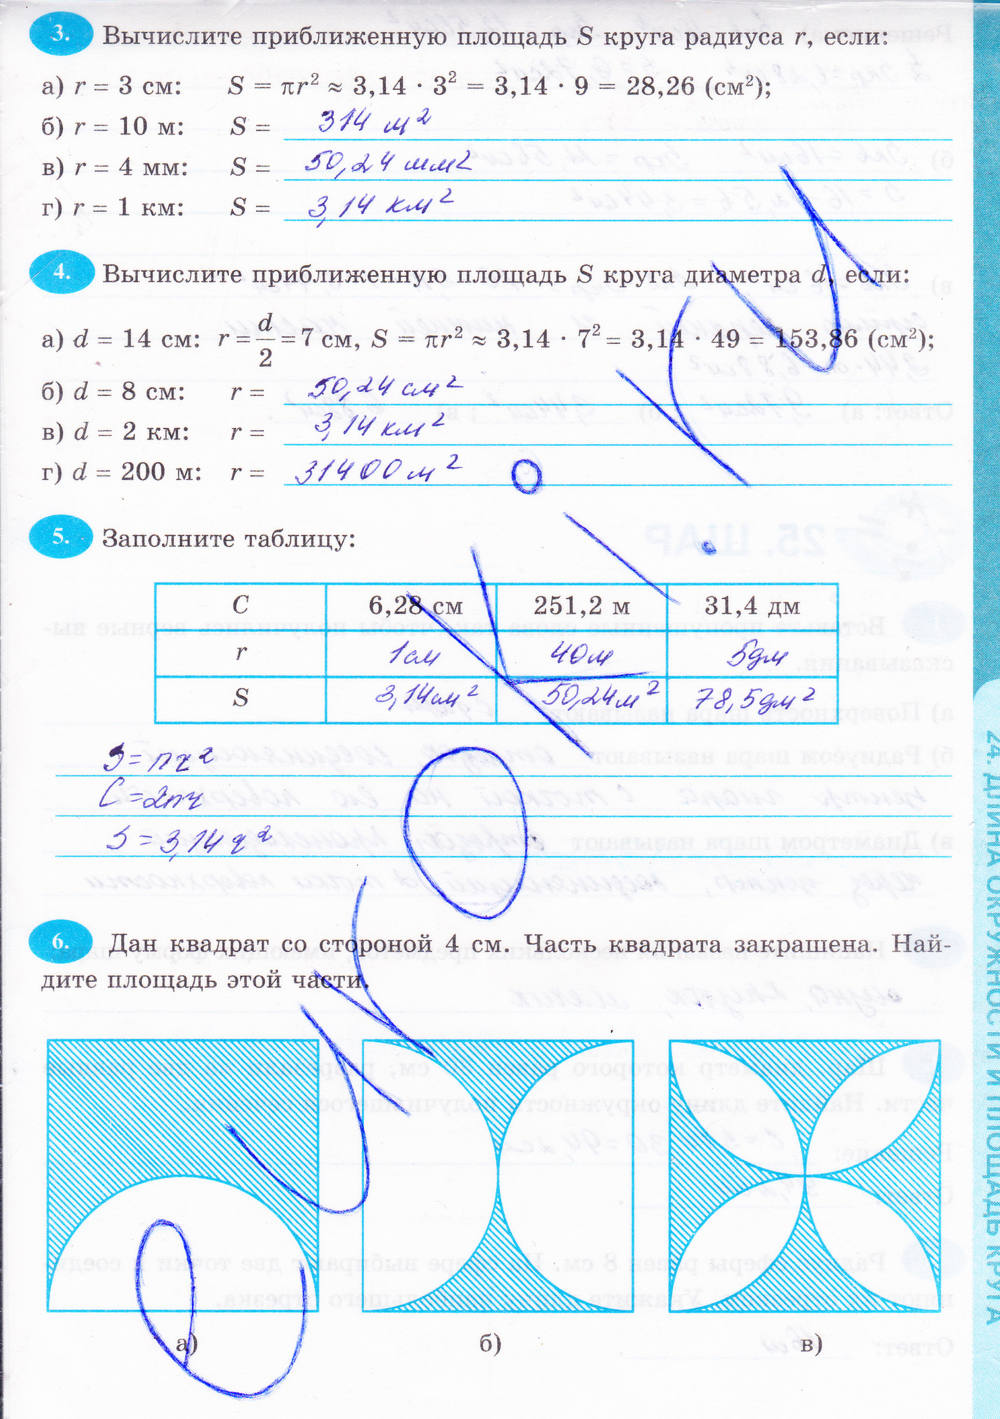 3. Вычислите приближенную площадь S круга радиуса r, если:
а) r = 3 см: S = πr² ≈ 3,14 · 3² = 3,14 · 9 = 28,26 (см²);
б) r = 10 м: S = 314 м²
в) r = 4 мм: S = 50,24 мм²
г) r = 1 км: S = 3,14 км²
4. Вычислите приближенную площадь S круга диаметра d, если:
а) d = 14 см: r = d/2 = 7 см, S = πr² ≈ 3,14 · 7² = 3,14 · 49 = 153,86 (см²);
б) d = 8 см: r = 50,24 см²
в) d = 2 км: r = 3,14 км²
г) d = 200 м: r = 31400 м²
5. Заполните таблицу:
C 6,28 см 251,2 м 31,4 дм
r 1 см 40 м 5 дм
S 3,14 см² 50,24 м² 78,5 дм²
S = πr²
C = 2πr
S = 3,14 r²
6. Дан квадрат со стороной 4 см. Часть квадрата закрашена. Най-
дите площадь этой части.
а) б) в)
24. ДЛИНА ОКРУЖНОСТИ И ПЛОЩАДЬ КРУГА